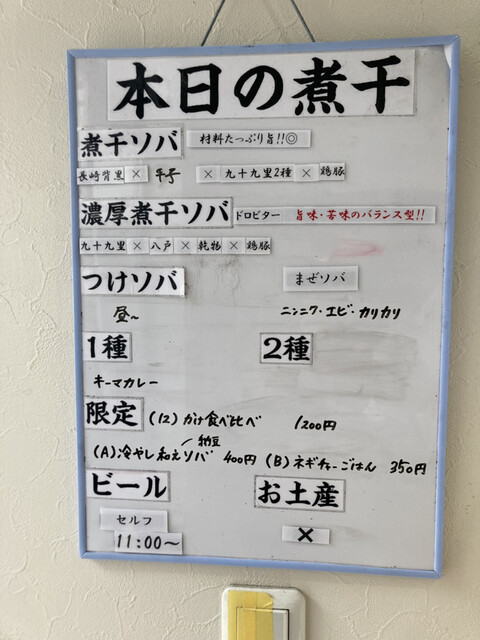 本日の煮干
煮干ソバ 材料たっぷり旨!!◎
長崎背黒 × 平子 × 九十九里2種 × 鶏豚
濃厚煮干ソバ ドロビター 旨味・苦味のバランス型!!
九十九里 × 八戸 × 乾物 × 鶏豚
つけソバ まぜソバ
昼〜 ニンニク・エビ・カリカリ
1種 2種
キーマカレー
限定 (12) かけ食べ比べ 1200円
納豆
(A) 冷やし和えソバ 400円 (B) ネギチャーごはん 350円
ビール お土産
セルフ
11:00〜 ×